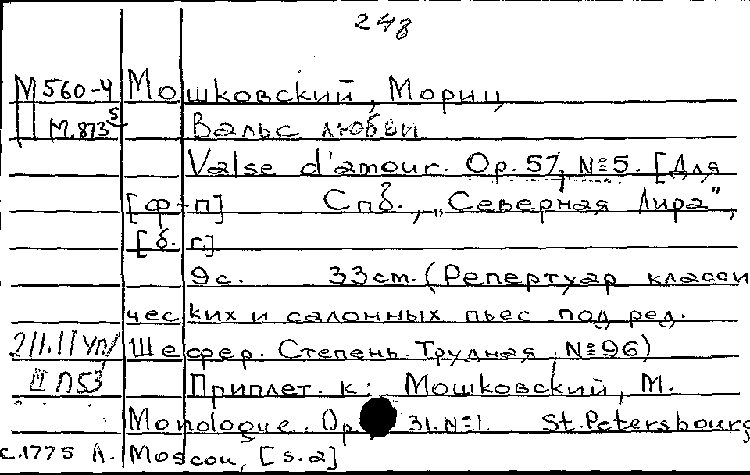 248
М 560-4 Мошковский, Мориц
П М.873 5 Вальс любви
Valse d'amour. Op. 57, №5. [Для
[ф-п] Спб., „Северная Лира",
[б. г.]
9с. 33см. (Репертуар класси
ческих и салонных пьес под ред.
211.II Шефер. Степень Трудная №96)
Приплет. к: Мошковский, М.
Monologue. Op. 31. №1. St. Petersbourg
с.1775 Л. Moscou, [s.a]